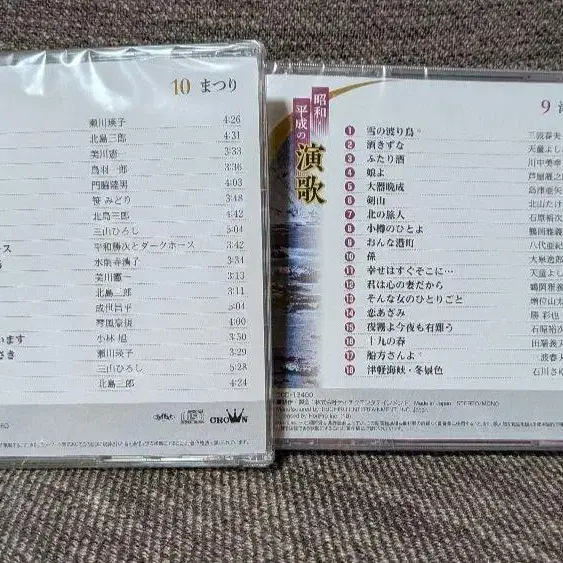 10 まつり
瀬川瑛子 4:26
北島三郎 4:31
美川憲一 3:33
鳥羽一郎 3:36
門脇陸男 4:03
笹みどり 3:48
北島三郎 4:42
三山ひろし 5:04
平和勝次とダークホース 3:42
水前寺清子 3:34
美川憲一 3:13
北島三郎 3:11
成世昌平 5:04
琴風豪規 4:00
います 小林 旭 3:50
さき 瀬川瑛子 3:29
三山ひろし 5:28
北島三郎 4:24
CROWN
昭和
平成の
演歌
9
1 雪の渡り鳥 三波春夫
2 酒きずな 天童よし
3 ふたり酒 川中美幸
4 娘よ 芦屋雁之
5 大器晩成 島津亜矢
6 剣山 北山たけ
7 北の旅人 石原裕次
8 小樽のひとよ 鶴岡雅義
9 おんな港町 八代亜紀
10 孫 大泉逸郎
11 幸せはすぐそこに… 天童よし
12 君は心の妻だから 鶴岡雅義
13 そんな女のひとりごと 増位山太
14 恋あざみ 勝 彩也
15 夜霧よ今夜も有難う 石原裕次
16 十九の春 田端義夫
17 船方さんよ 三波春夫
18 津軽海峡・冬景色 石川さゆ
Made in Japan STEREO/MONO